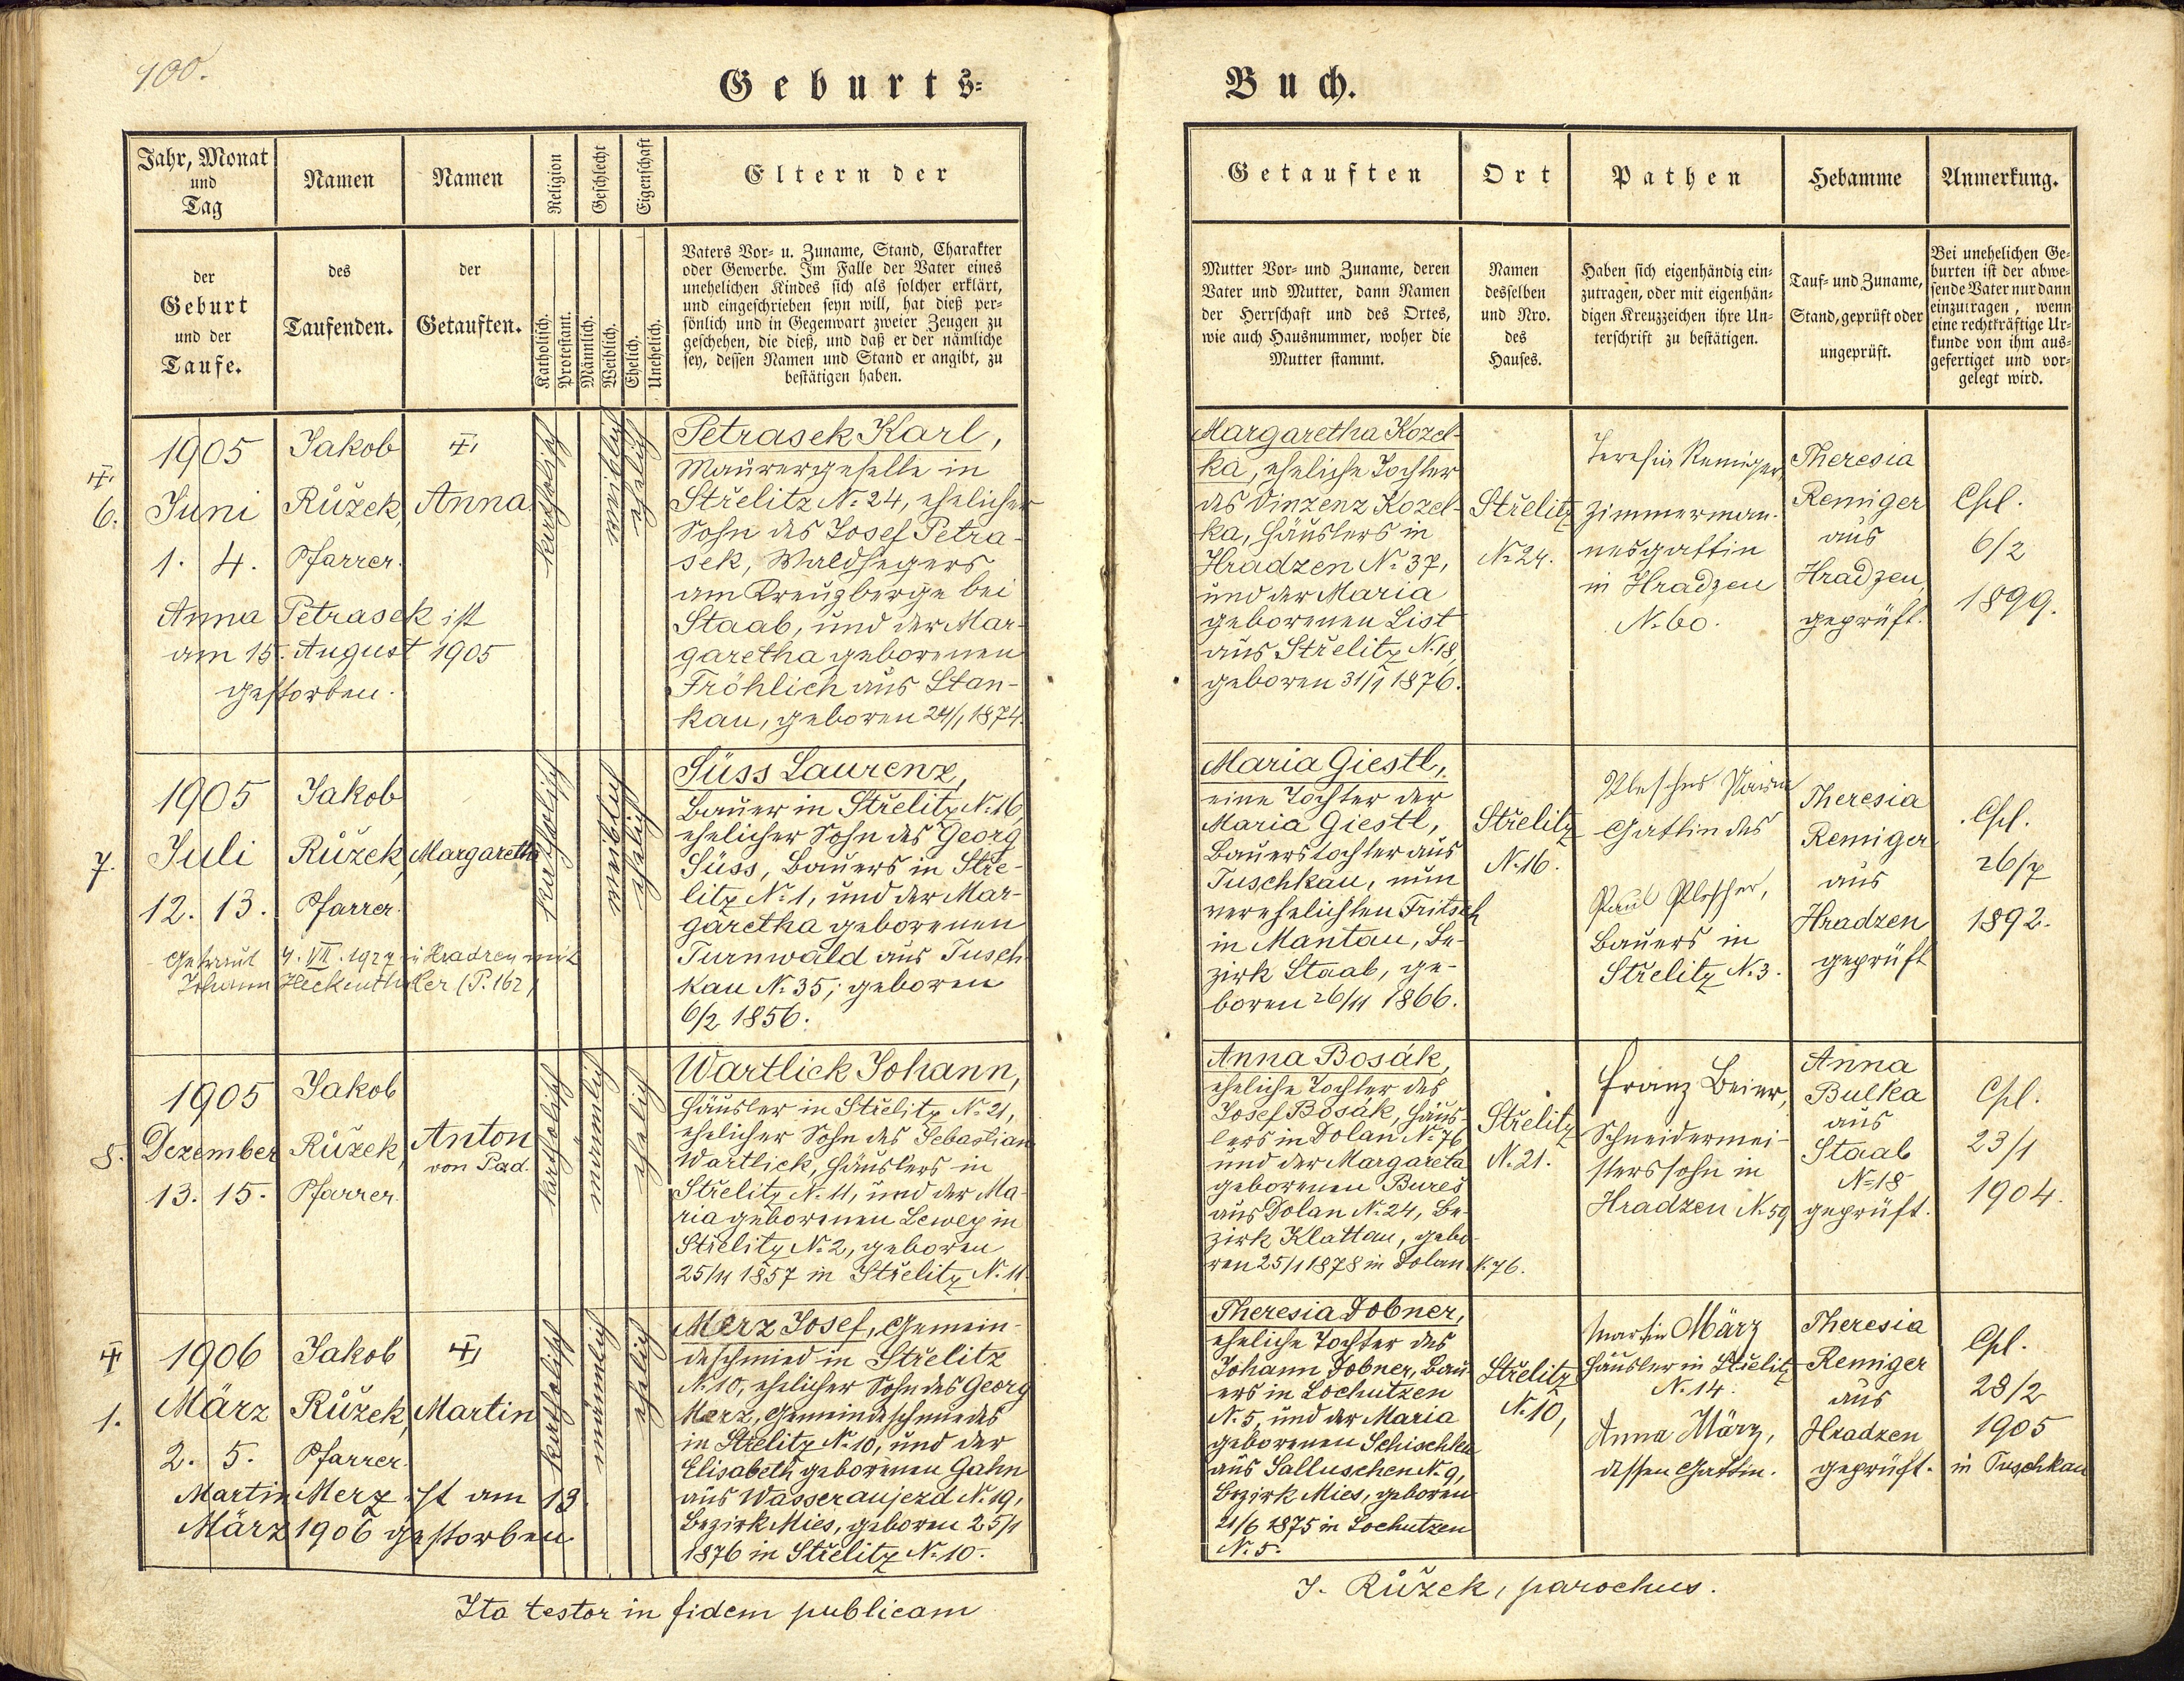 100.
Geburts-
Buch.
Jahr, Monat
und
Tag
Namen
Namen
Religion
Geschlecht
Eigenschaft
Eltern der
der
Geburt
und der
Taufe.
des
Taufenden.
der
Getauften.
Katholisch.
Protestant.
Männlich.
Weiblich.
Ehelich.
Unehelich.
Vaters Vor- u. Zuname, Stand, Charakter
oder Gewerbe. Im Falle der Vater eines
unehelichen Kindes sich als solcher erklärt,
und eingeschrieben seyn will, hat dieß per-
sönlich und in Gegenwart zweier Zeugen zu
geschehen, die dieß, und daß er der nämliche
sey, dessen Namen und Stand er angibt, zu
bestätigen haben.
Getauften
Ort
Pathen
Hebamme
Anmerkung.
Mutter Vor- und Zuname, deren
Vater und Mutter, dann Namen
der Herrschaft und des Ortes,
wie auch Hausnummer, woher die
Mutter stammt.
Namen
desselben
und Nro.
des
Hauses.
Haben sich eigenhändig ein-
zutragen, oder mit eigenhän-
digen Kreuzzeichen ihre Un-
terschrift zu bestätigen.
Tauf- und Zuname,
Stand, geprüft oder
ungeprüft.
Bei unehelichen Ge-
burten ist der abwe-
sende Vater nur dann
einzutragen, wenn
eine rechtkräftige Ur-
kunde von ihm aus-
gefertiget und vor-
gelegt wird.
6.
1905
Juni
1. 4.
Jakob
Růžek,
Pfarrer.
Anna
katholisch
weiblich
ehelich
Anna Petrasek ist
am 15. August 1905
gestorben.
Petrasek Karl,
Maurergeselle in
Střelitz No 24, ehelicher
Sohn des Josef Petra-
sek, Waldhegers
am Kreuzberge bei
Staab, und der Mar-
garetha geborenen
Fröhlich aus Stan-
kau, geboren 24/1 1874.
Margaretha Kozel-
ka, eheliche Tochter
des Vinzenz Kozel-
ka, Häuslers in
Hradzen No 37,
und der Maria
geborenen List
aus Střelitz No 18,
geboren 31/1 1876.
Střelitz
No 24.
Theresia Remiger,
Zimmerman-
nesgattin
in Hradzen
No 60.
Theresia
Remiger
aus
Hradzen,
geprüft.
Cpl.
6/2
1899.
7.
1905
Juli
12. 13.
Jakob
Růžek,
Pfarrer.
Margaretha
katholisch
weiblich
ehelich
Getraut 4. VII. 1927 in Hradzen mit
Johann Heckenthaler (P. 162)
Süss Laurenz,
Bauer in Střelitz No 16,
ehelicher Sohn des Georg
Süss, Bauers in Stře-
litz No 1, und der Mar-
garetha geborenen
Turnwald aus Tusch-
kau No 35; geboren
6/2 1856.
Maria Giestl,
eine Tochter der
Maria Giestl,
Bauerstochter aus
Tuschkau, nun
verehelichten Fritsch
in Mantau, Be-
zirk Staab, ge-
boren 26/11 1866.
Střelitz
No 16.
Gattin des
Paul Plescher,
Bauers in
Střelitz No 3.
Theresia
Remiger
aus
Hradzen
geprüft
Cpl.
26/7
1892.
8.
1905
Dezember
13. 15.
Jakob
Růžek,
Pfarrer.
Anton
von Pad.
katholisch
männlich
ehelich
Wartlick Johann,
Häusler in Střelitz No 21,
ehelicher Sohn des Sebastian
Wartlick, Häuslers in
Střelitz No 11, und der Ma-
ria geborenen Lewey in
Střelitz No 2, geboren
25/11 1857 in Střelitz No 11.
Anna Bosák,
eheliche Tochter des
Josef Bosák, Häus-
lers in Dolan No 76
und der Margareta
geborenen Bureš
aus Dolan No 24, Be-
zirk Klattau, gebo-
ren 25/1 1878 in Dolan No 76.
Střelitz
No 21.
Franz Beier,
Schneidermei-
sterssohn in
Hradzen No 59
Anna
Bulka
aus
Staab
No 18
geprüft.
Cpl.
23/1
1904.
1.
1906
März
2. 5.
Jakob
Růžek,
Pfarrer.
Martin
katholisch
männlich
ehelich
Martin Merz ist am 13.
März 1906 gestorben
Merz Josef, Gemein-
deschmied in Střelitz
No 10, ehelicher Sohn des Georg
Merz, Gemeindeschmiedes
in Střelitz No 10, und der
Elisabeth geborenen Gahn
aus Wasseraujezd No 19,
Bezirk Mies, geboren 25/1
1876 in Střelitz No 10.
Theresia Dobner,
eheliche Tochter des
Johann Dobner, Bau-
ers in Lochutzen
No 5, und der Maria
geborenen Schischka
aus Salluschen No 9,
Bezirk Mies, geboren
21/6 1875 in Lochutzen
No 5.
Střelitz
No 10,
Martin März
Häusler in Střelitz
No 14.
Anna März,
dessen Gattin.
Theresia
Remiger
aus
Hradzen
geprüft.
Cpl.
28/2
1905
in Tuschkau
Ita testor in fidem publicam
J. Růžek, parochus.